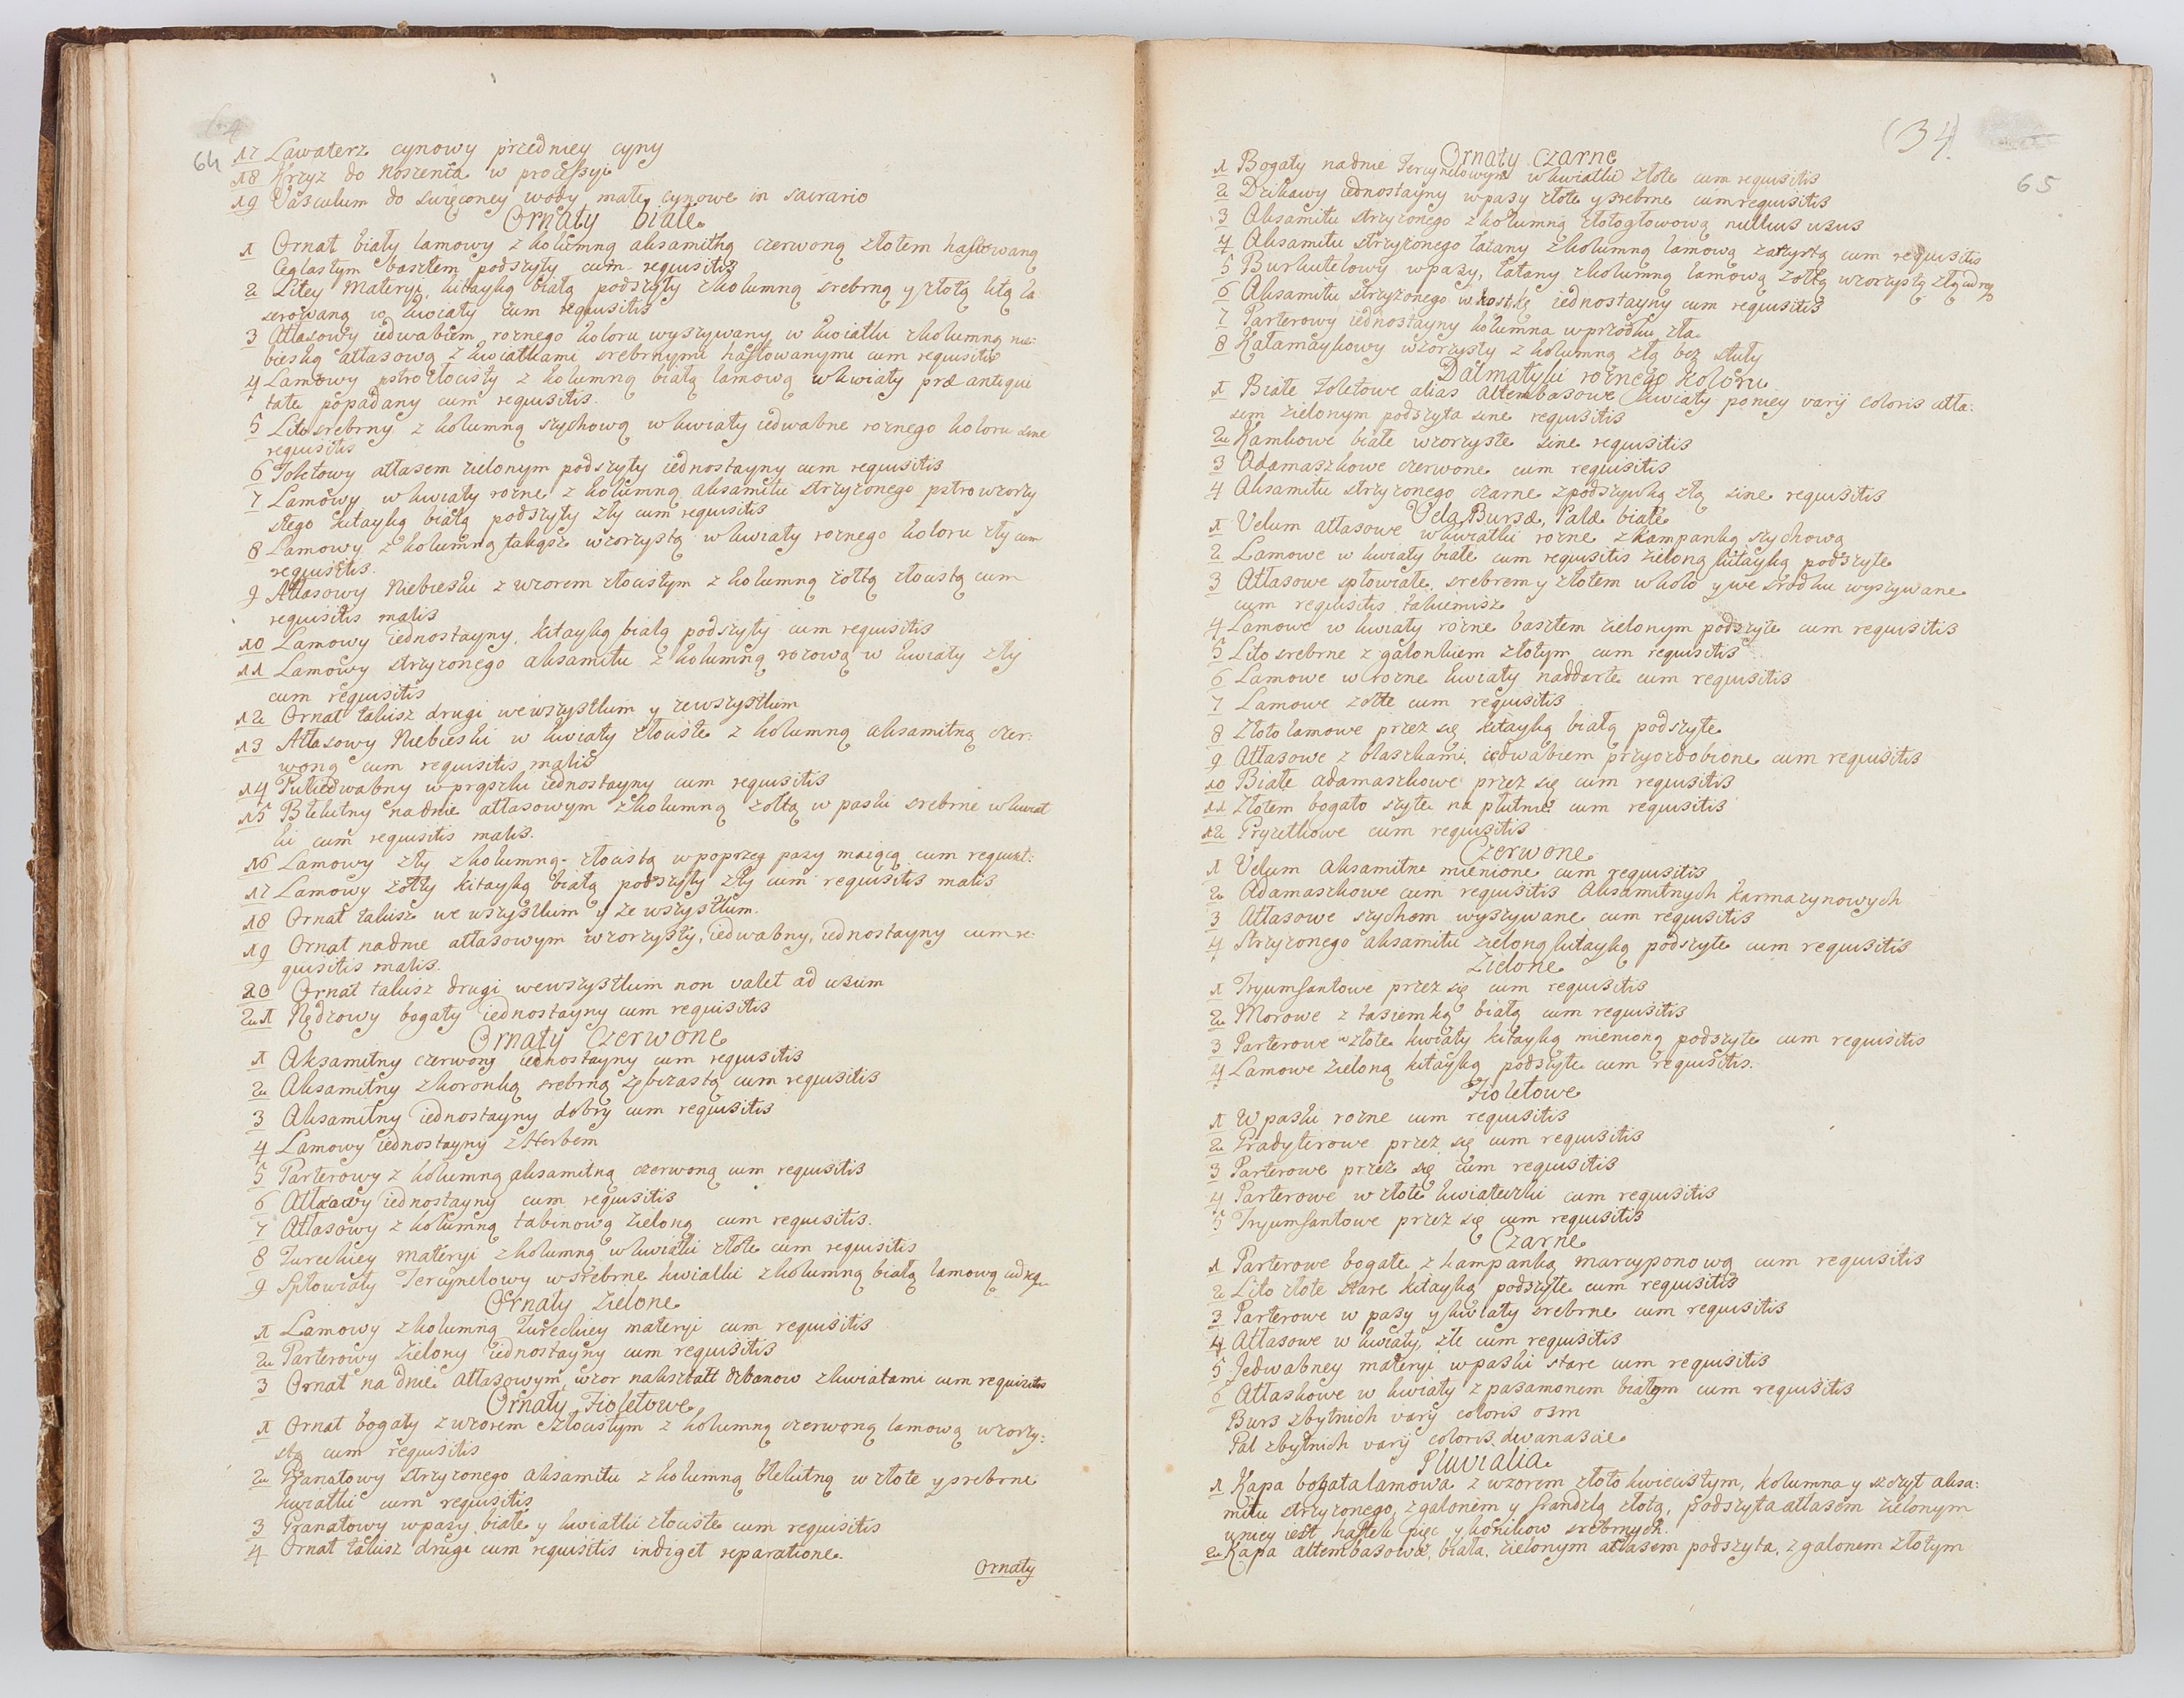 64
17 Lawaterz cynowy przedniey cyny
18 Krzyz do noszenia w processyi
19 Vasculum do swięconey wody małe cynowe in sacrario
Ornaty białe
1 Ornat biały lamowy z kolumną aksamitną czerwoną złotem haftowaną
Ceglastym basztem podszyty cum requisitis
2 Litey Materyi, kitayką białą podszyty z kolumną srebrną y złotą litą la
serowaną w kwiaty cum requisitis
3 Atłasowy iedwabiem roznego koloru wyszywany w kwiatki z kolumną nie:
bieską atłasową z kwiatkami srebrnymi haftowanymi cum requisitis
4 Lamowy pstro złocisty z kolumną białą lamową w kwiaty præ antiqui
tate popadany cum requisitis.
5 Lito srebrny z kolumną szychową w kwiaty iedwabne roznego koloru sine
requisitis
6 Toletowy atłasem zielonym podszyty iednostayny cum requisitis
7 Lamowy w kwiaty rozne z kolumną aksamitu strzyzonego pstro wzorzy
stego kitayką białą podszyty zły cum requisitis
8 Lamowy z kolumną takąsz wzorzystą w kwiaty roznego koloru zły cum
requisitis.
9 Atłasowy Niebieski z wzorem złocistym z kolumną zołtą złocistą cum
requisitis malis
10 Lamowy iednostayny, kitayką białą podszyty cum requisitis
11 Lamowy strzyzonego aksamitu z kolumną rozową w kwiaty zły
cum requisitis
12 Ornat takisz drugi we wszystkim y ze wszystkim
13 Atłasowy Niebieski w kwiaty złociste z kolumną aksamitną czer:
woną cum requisitis malis
14 Pułiedwabny w prązki iednostayny cum requisitis
15 Błekitny na dnie atłasowym z kolumną zołtą w paski srebrne w kwiat
ki cum requisitis malis.
16 Lamowy zły z kolumną złocistą w poprzeg pasy maiącą cum requisit:
17 Lamowy zołty kitayką białą podszyty zły cum requisitis malis
18 Ornat takisz we wszystkim y ze wszystkim.
19 Ornat na dnie atłasowym wzorzysty, iedwabny, iednostayny cum re:
quisitis malis.
20 Ornat takisz drugi we wszystkim non valet ad usum
21 Nędzowy bogaty iednostayny cum requisitis
Ornaty Czerwone
1 Aksamitny czerwony iednostayny cum requisitis
2 Aksamitny z koronką srebrną zębczastą cum requisitis
3 Aksamitny iednostayny dobry cum requisitis
4 Lamowy iednostayny z Herbem
5 Parterowy z kolumną aksamitną czerwoną cum requisitis
6 Atłasowy iednostayny cum requisitis
7 Atłasowy z kolumną tabinową zieloną cum requisitis.
8 Tureckiey materyi z kolumną w kwiatki złote cum requisitis
9 Spłowiały Tercynelowy w srebrne kwiatki z kolumną białą lamową
Ornaty Zielone
1 Lamowy z kolumną Tureckiey materyi cum requisitis
2 Parterowy Zielony iednostayny cum requisitis
3 Ornat na dnie Atłasowym, wzor nakształt dzbanow z kwiatami cum requisitis
Ornaty Fioletowe
1 Ornat bogaty z wzorem złocistym z kolumną czerwoną lamową wzorzy:
stą cum requisitis
2 Granatowy strzyzonego aksamitu z kolumną błekitną w złote y srebrne
kwiatki cum requisitis
3 Granatowy w pasy białe y kwiatki złociste cum requisitis
4 Ornat takisz drugi cum requisitis indiget reparatione.
Ornaty
(34)
65
Ornaty Czarne
1 Bogaty na dnie Tercynelowym w kwiatki złote cum requisitis
2 Dzikawy iednostayny w pasy złote y srebrne cum requisitis
3 Aksamitu strzyzonego z kolumną złotogłowową nullius usus
4 Aksamitu strzyzonego łatany z kolumną lamową cum requisitis
5 Burkatelowy w pasy, łatany z kolumną lamową zołtą wzorzystą
6 Aksamitu strzyzonego w kostkę iednostayny cum requisitis
7 Parterowy iednostayny kolumna w przodku zła
8 Kałamaykowy wzorzysty z kolumną złą bez stuły
Dalmatyki roznego Koloru
1 Białe Toletowe alias Altembasowe kwiaty po niey varij coloris atła:
sem zielonym podszyta sine requisitis
2 Kamkowe białe wzorzyste sine requisitis
3 Adamaszkowe czerwone cum requisitis
4 Aksamitu strzyzonego czarne z podszywką złą sine requisitis
Vela, Bursæ, Palæ białe
1 Velum atłasowe w kwiatki rozne z kampanką szychową
2 Lamowe w kwiaty białe cum requisitis zieloną kitayką podszyte
3 Atłasowe spłowiałe, srebrem y złotem w koło y we srodku wyszywane
cum requisitis takiemisz
4 Lamowe w kwiaty rozne basztem zielonym podszyte cum requisitis
5 Lito srebrne z galonkiem złotym cum requisitis
6 Lamowe w rozne kwiaty naddarte cum requisitis
7 Lamowe zołte cum requisitis
8 Złoto lamowe przez się kitayką białą podszyte
9 Atłasowe z blaszkami, iedwabiem przyozdobione cum requisitis
10 Białe adamaszkowe przez się cum requisitis
11 Złotem bogato szyte na płutnie cum requisitis
12 Gryzetkowe cum requisitis
Czerwone
1 Velum Aksamitne mienione cum requisitis
2 Adamaszkowe cum requisitis Aksamitnych karmazynowych
3 Atłasowe szychem wyszywane cum requisitis
4 Strzyzonego aksamitu zieloną kitayką podszyte cum requisitis
Zielone
1 Tryumfantowe przez się cum requisitis
2 Morowe z tasiemką białą cum requisitis
3 Parterowe w złote kwiaty kitayką mienioną podszyte cum requisitis
4 Lamowe Zieloną kitayką podszyte cum requisitis.
Fioletowe
1 W paski rozne cum requisitis
2 Gradyterowe przez się cum requisitis
3 Parterowe przez się cum requisitis
4 Parterowe w złote kwiateczki cum requisitis
5 Tryumfantowe przez się cum requisitis
Czarne
1 Parterowe bogate z kampanką marcyponową cum requisitis
2 Lito złote stare kitayką podszyte cum requisitis
3 Parterowe w pasy y kwiaty srebrne cum requisitis
4 Atłasowe w kwiaty, złe cum requisitis
5 Jedwabney materyi w paski stare cum requisitis
6 Atłaskowe w kwiaty z pasamonem białym cum requisitis
Burs zbytnich varij coloris osm
Pal zbytnich varij coloris dwanascie
Pluvialia
1 Kapa bogata lamowa z wzorem złoto kwiecistym, kolumna y szczyt aksa:
mitu strzyzonego z galonem y frandzlą złotą, podszyta atłasem zielonym
u niey iest haftek pięc y konikow srebrnych.
2 Kapa altembasowa, biała, zielonym atłasem podszyta, z galonem złotym